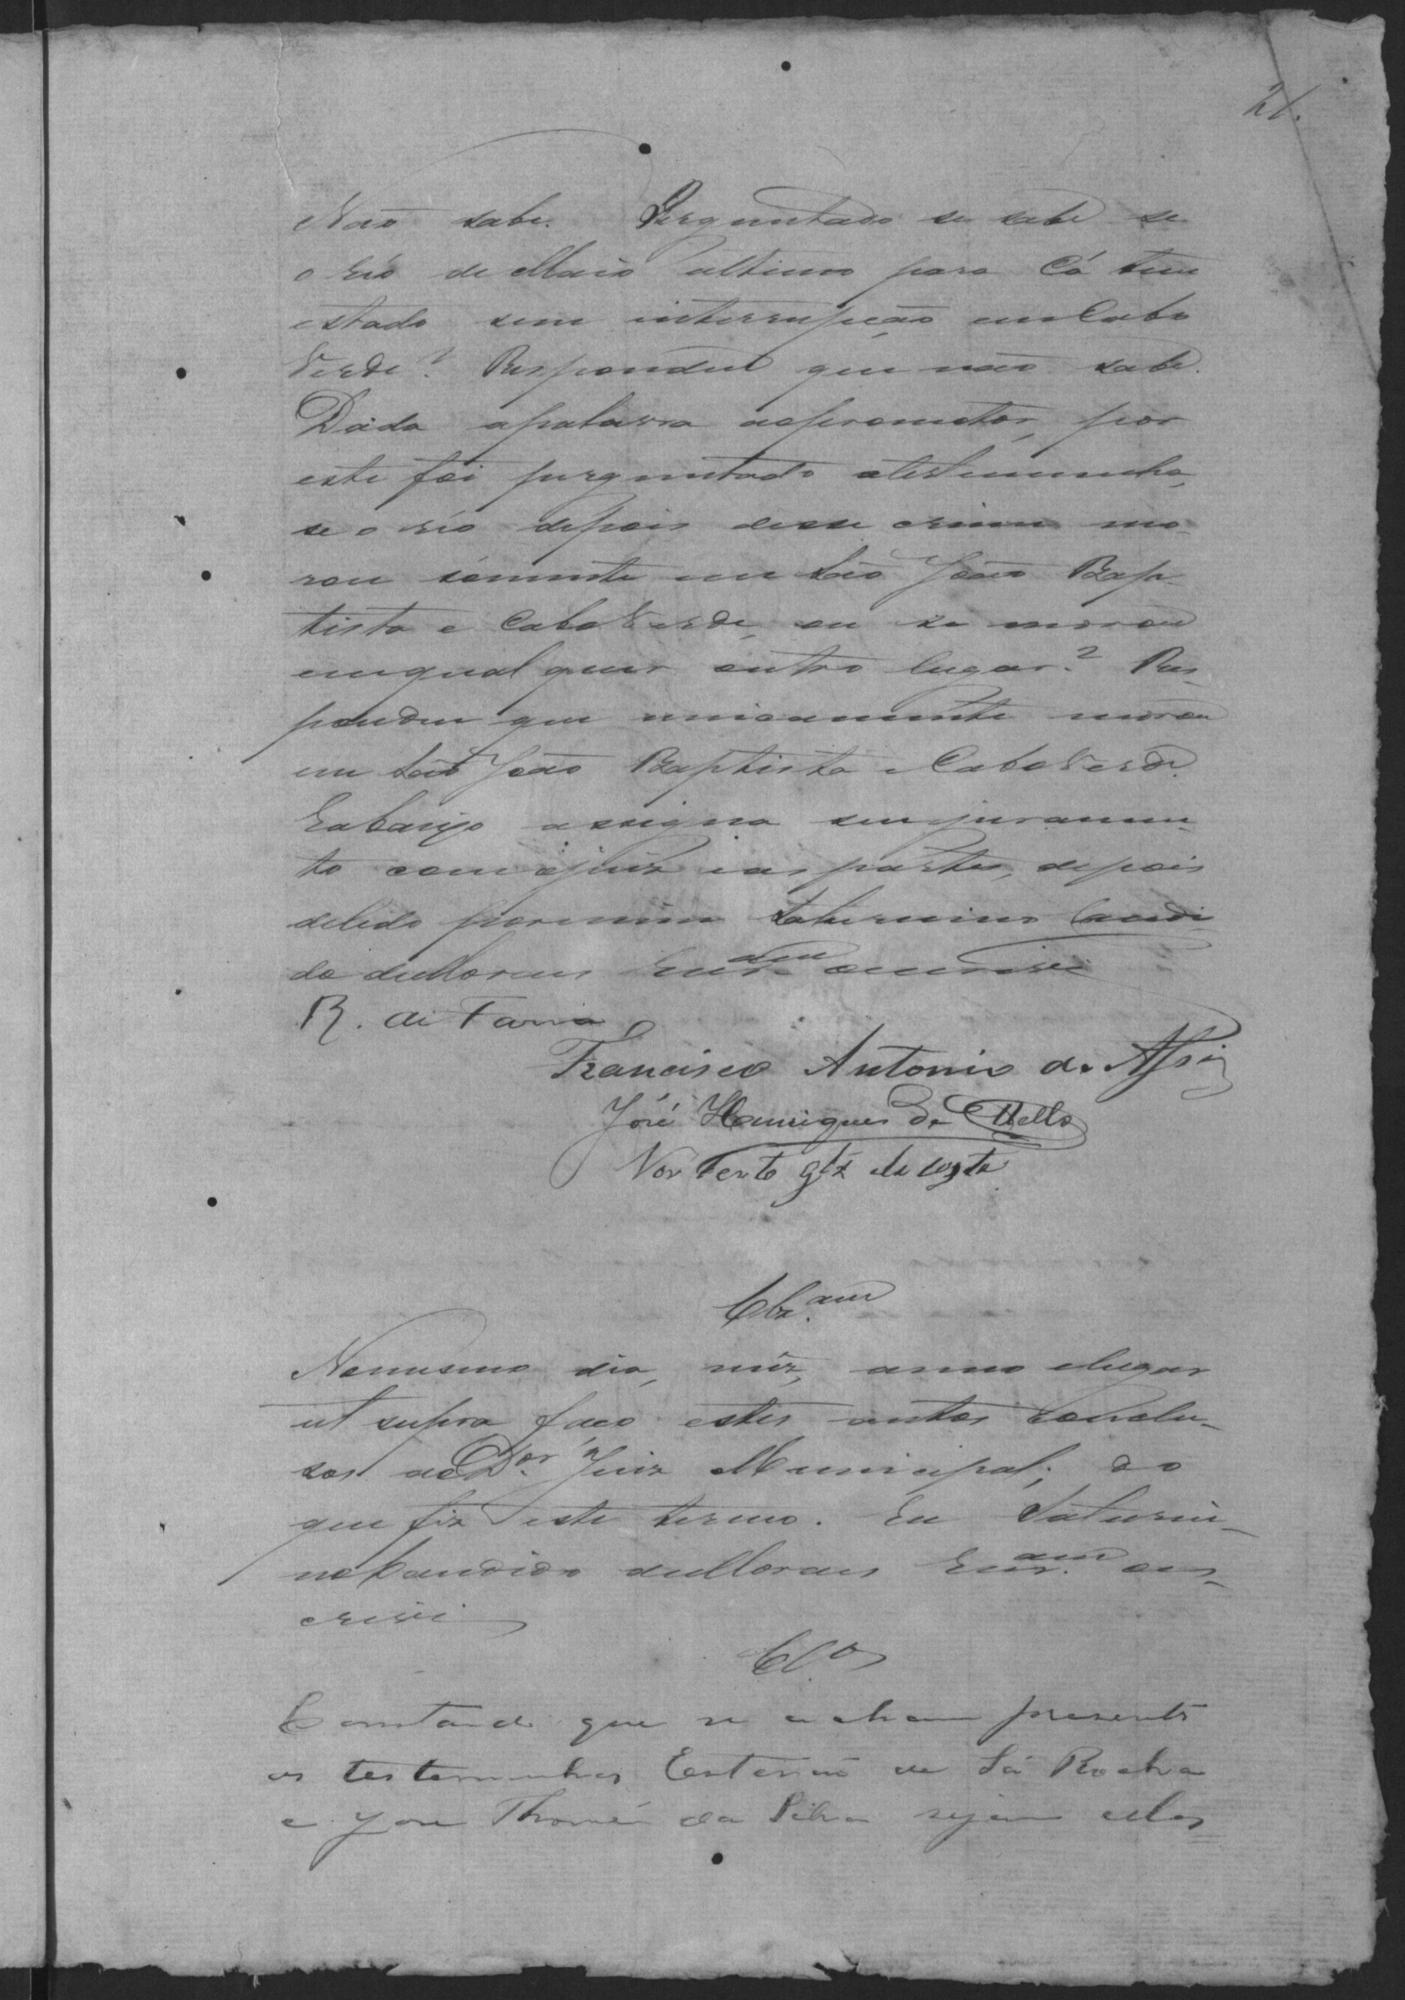 21.
Não sabe. Perguntado se sabe se
o réo de Maio ultimo para cá tem
estado sem interrupção em Cabo
Verde? Respondeu que não sabe.
Dada a palavra ao promotor, por
este foi perguntado a testemunha,
se o réo depois desse crime mo-
rou sómente em São João Bap-
tista e Cabo Verde, ou se morou
em qual quer outro lugar? Res-
pondeu que unicamente morou
em São João Baptista e Cabo Verde.
E abaixo assigna seu juramen-
to com o juiz e as partes, depois
de lido por mim Saturnino Candi-
do de Moraes Escr.am o escrevi
R. de Faria
Francisco Antonio de Assis
José Henriques de Mello
Norberto Glz da Costa
Clz.am
No mesmo dia, mez, anno e lugar
ut supra faço estes autos conclu-
sos ao D.or Juiz Municipal; do
que fiz este termo. Eu Saturni-
no Candido de Moraes Escr.am o es-
crevi
Cl.os
Constando que se acham presentes
as testemunhas de Sá Rocha
e José Thomé da Silva sejam ellas